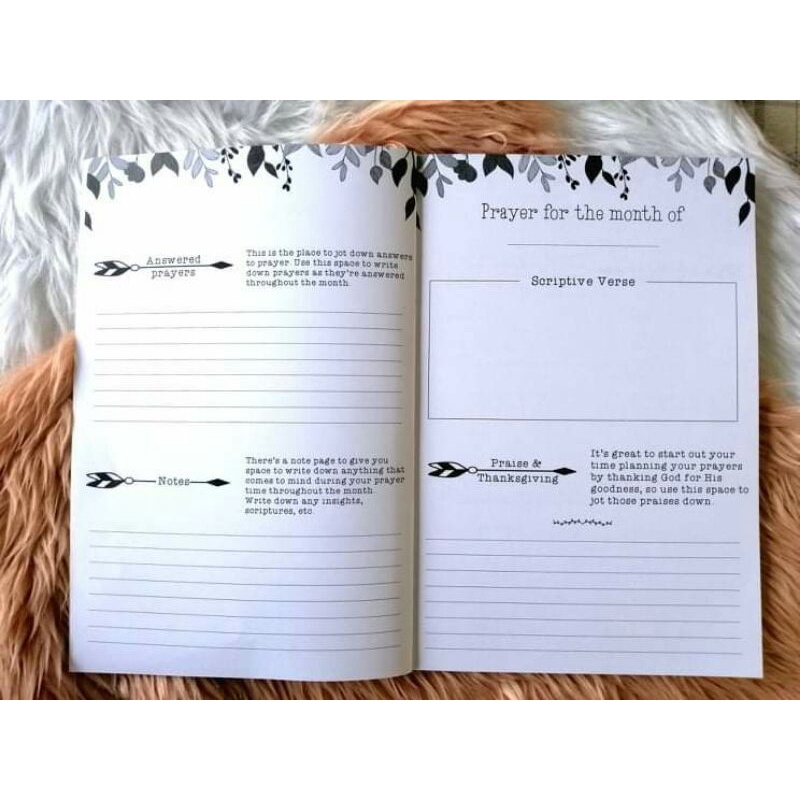 Answered
prayers
This is the place to jot down answers
to prayer. Use this space to write
down prayers as they're answered
throughout the month.
Notes
There's a note page to give you
space to write down anything that
comes to mind during your prayer
time throughout the month.
Write down any insights,
scriptures, etc.
Prayer for the month of
Scriptive Verse
Praise &
Thanksgiving
It's great to start out your
time planning your prayers
by thanking God for His
goodness, so use this space to
jot those praises down.